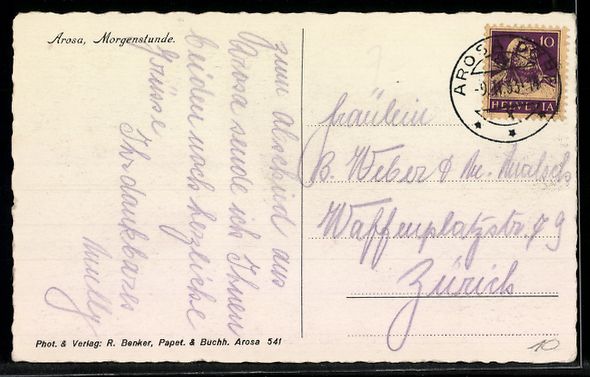 Arosa, Morgenstunde.
zum Abschied aus
Arosa sende ich Ihnen
beiden noch herzliche
Grüsse
Ihr dankbares
Fräulein
B. Weber & M.
Waffenplatzstr. 79
Zürich
AROSA
10
HELVETIA
Phot. & Verlag: R. Benker, Papet. & Buchh. Arosa 541
10